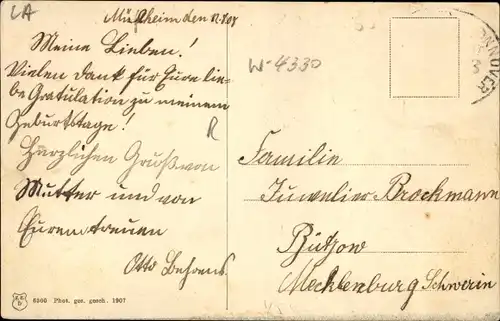 LA
den
W-4330
Meine Lieben!
Vielen Dank für Eure lie-
be Gratulation zu meinem
Geburtstage!
R
Herzlichen Gruß von
Mutter und von
Eurem treuen
Otto Behrens.
Familie
Juwelier Brockmann
Bützow
Mecklenburg Schwerin
8500 Phot. ges. gesch. 1907